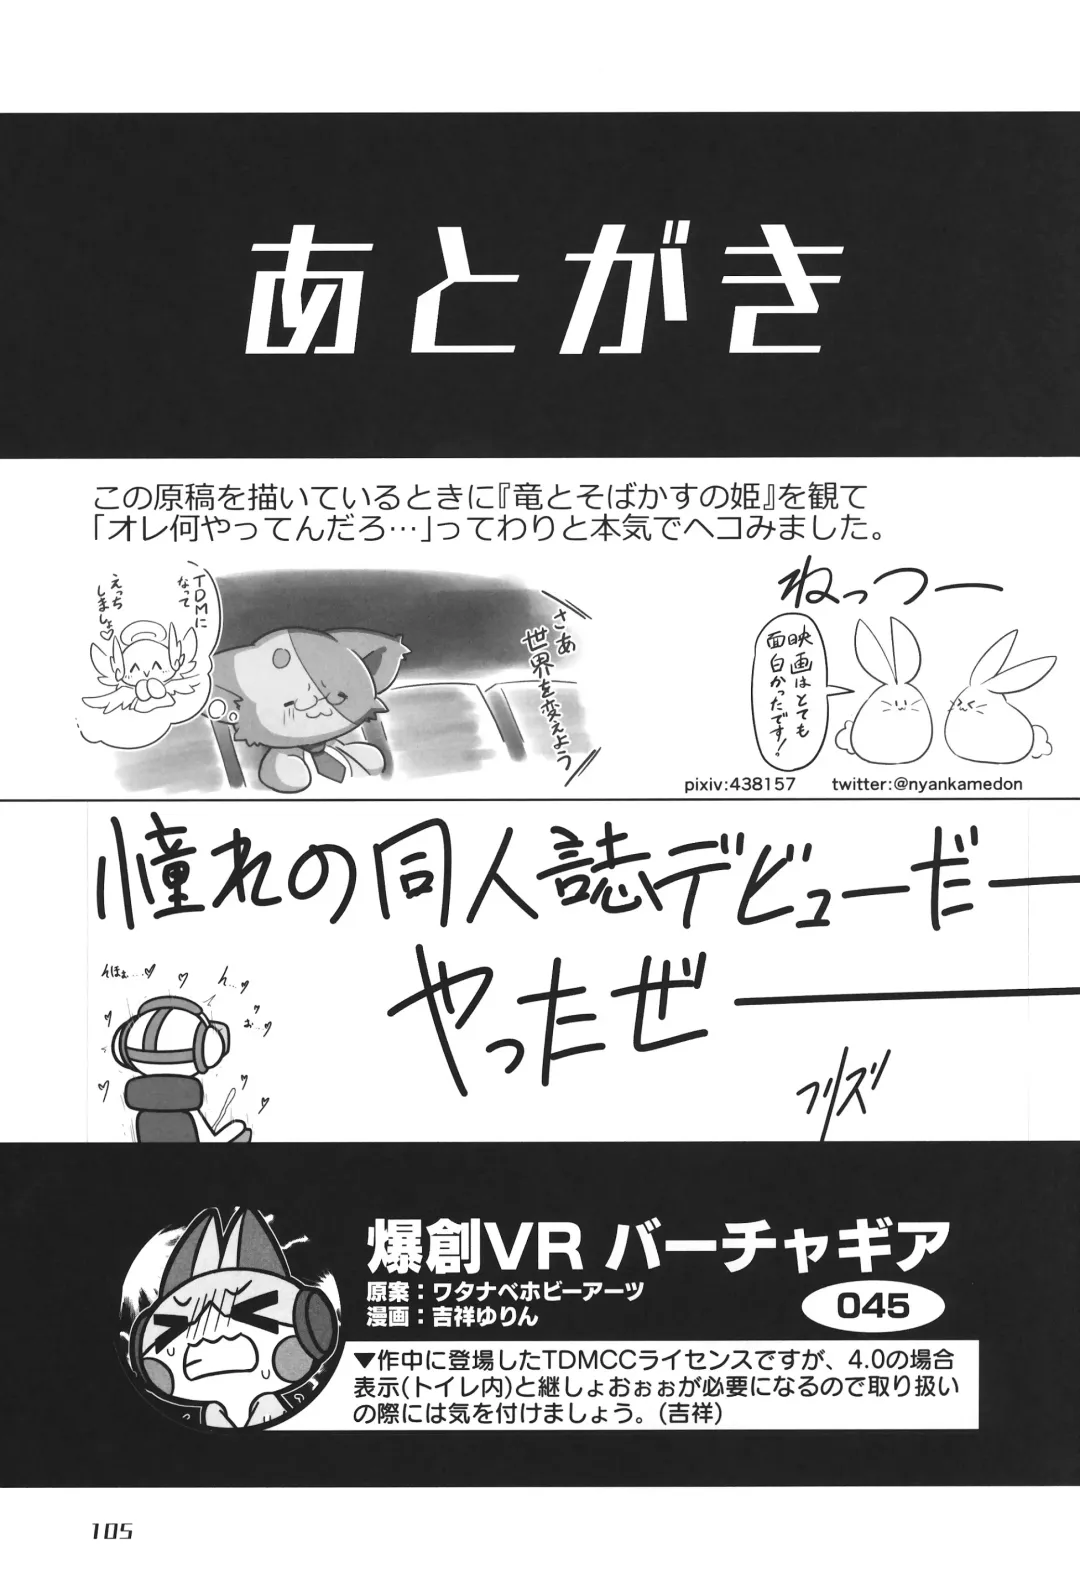 あとがき
この原稿を描いているときに『竜とそばかすの姫』を観て
「オレ何やってんだろ…」ってわりと本気でヘコみました。
TDMに
なって
えっち
しましょ♡
さあ
世界を変えよう
ねっつー
映画はとても
面白かったです！
pixiv:438157
twitter:@nyankamedon
憧れの同人誌デビューだー
やったぜー
そほぉ…♡
ん…♡
ッ
お…♡
フリズリ
爆創VR バーチャギア
原案：ワタナベホビーアーツ
漫画：吉祥ゆりん
045
▼作中に登場したTDMCCライセンスですが、4.0の場合
表示(トイレ内)と継しょおぉぉが必要になるので取り扱い
の際には気を付けましょう。(吉祥)
105